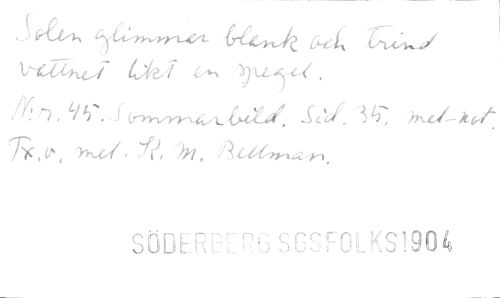 Solen glimmar blank och trind
vattnet likt en spegel.
N:r. 45. Sommarbild. Sid. 35. mel-not.
Tx. o. mel. K. M. Bellman.
SÖDERBERG SGSFOLKS1904